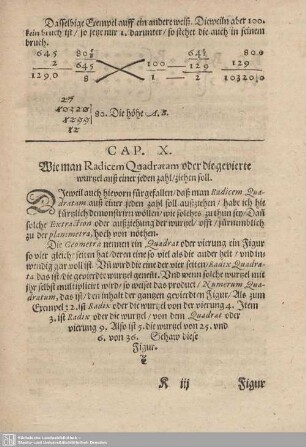 Dasselbige Exempel auff ein andere weiß. Dieweiln aber 100.
kein bruch ist / so setze nur 1. darunter / so stehet die auch in seinem
bruch.
645 80 645 80
2 645 100 129 129
129,0 8 1 2 10320
80. Die höhe A. B.
CAP. X.
Wie man Radicem Quadratam oder die gevierte
wurtzel auß einer jeden zahl / ziehen soll.
DJeweil auch hievorn fürgefallen / daß man Radicem Qua-
dratam auß einer jeden zahl soll außziehen / habe ich hie
kürtzlich demonstrirn wöllen / wie solches zu thun sey / Dañ
solche Extraction oder außziehung der wurtzel / offt / fürnemblich
zu der planimetra, hoch von nöthen.
Die Geometra nennen ein Quadrat oder vierung ein Figur
so vier gleicher seiten hat / deren eine so viel als die ander helt / und in-
wendig gar voll ist. Nu wird die eine der vier seiten / Radix Quadra-
ta das ist die gevierdte wurtzel genent. Und wenn solche wurtzel mit
ihr selbst multiplicirt wird / so weiset das product / Numerum Qua-
dratum, das ist / den inhalt der gantzen gevierdten Figur. Als zum
Exempel: 2. ist Radix oder die wurtzel von der vierung 4. Item
3. ist Radix oder die wurtzel / von dem Quadrat oder
vierung 9. Also ist 5. die wurtzel von 25. vnd
6. von 36. Schaw diese
Figur.
K iij Figur